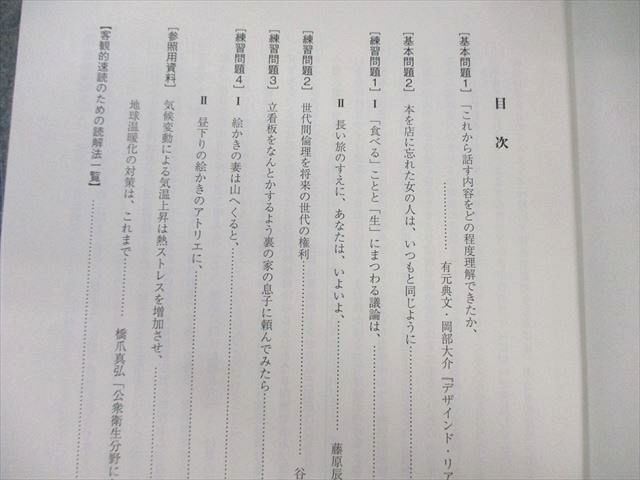 目次
【基本問題1】「これから話す内容をどの程度理解できたか、
有元典文・岡部大介『デザインド・リア
【基本問題2】本を店に忘れた女の人は、いつもと同じように
【練習問題1】Ⅰ「食べる」ことと「生」にまつわる議論は、
Ⅱ 長い旅のすえに、あなたは、いよいよ、
藤原辰
【練習問題2】世代間倫理を将来の世代の権利
谷
【練習問題3】立看板をなんとかするよう裏の家の息子に頼んでみたら
【練習問題4】Ⅰ 絵かきの妻は山へくると、
Ⅱ 昼下りの絵かきのアトリエに、
【参照用資料】気候変動による気温上昇は熱ストレスを増加させ、
地球温暖化の対策は、これまで
橋爪真弘「公衆衛生分野に
【客観的速読のための読解法一覧】